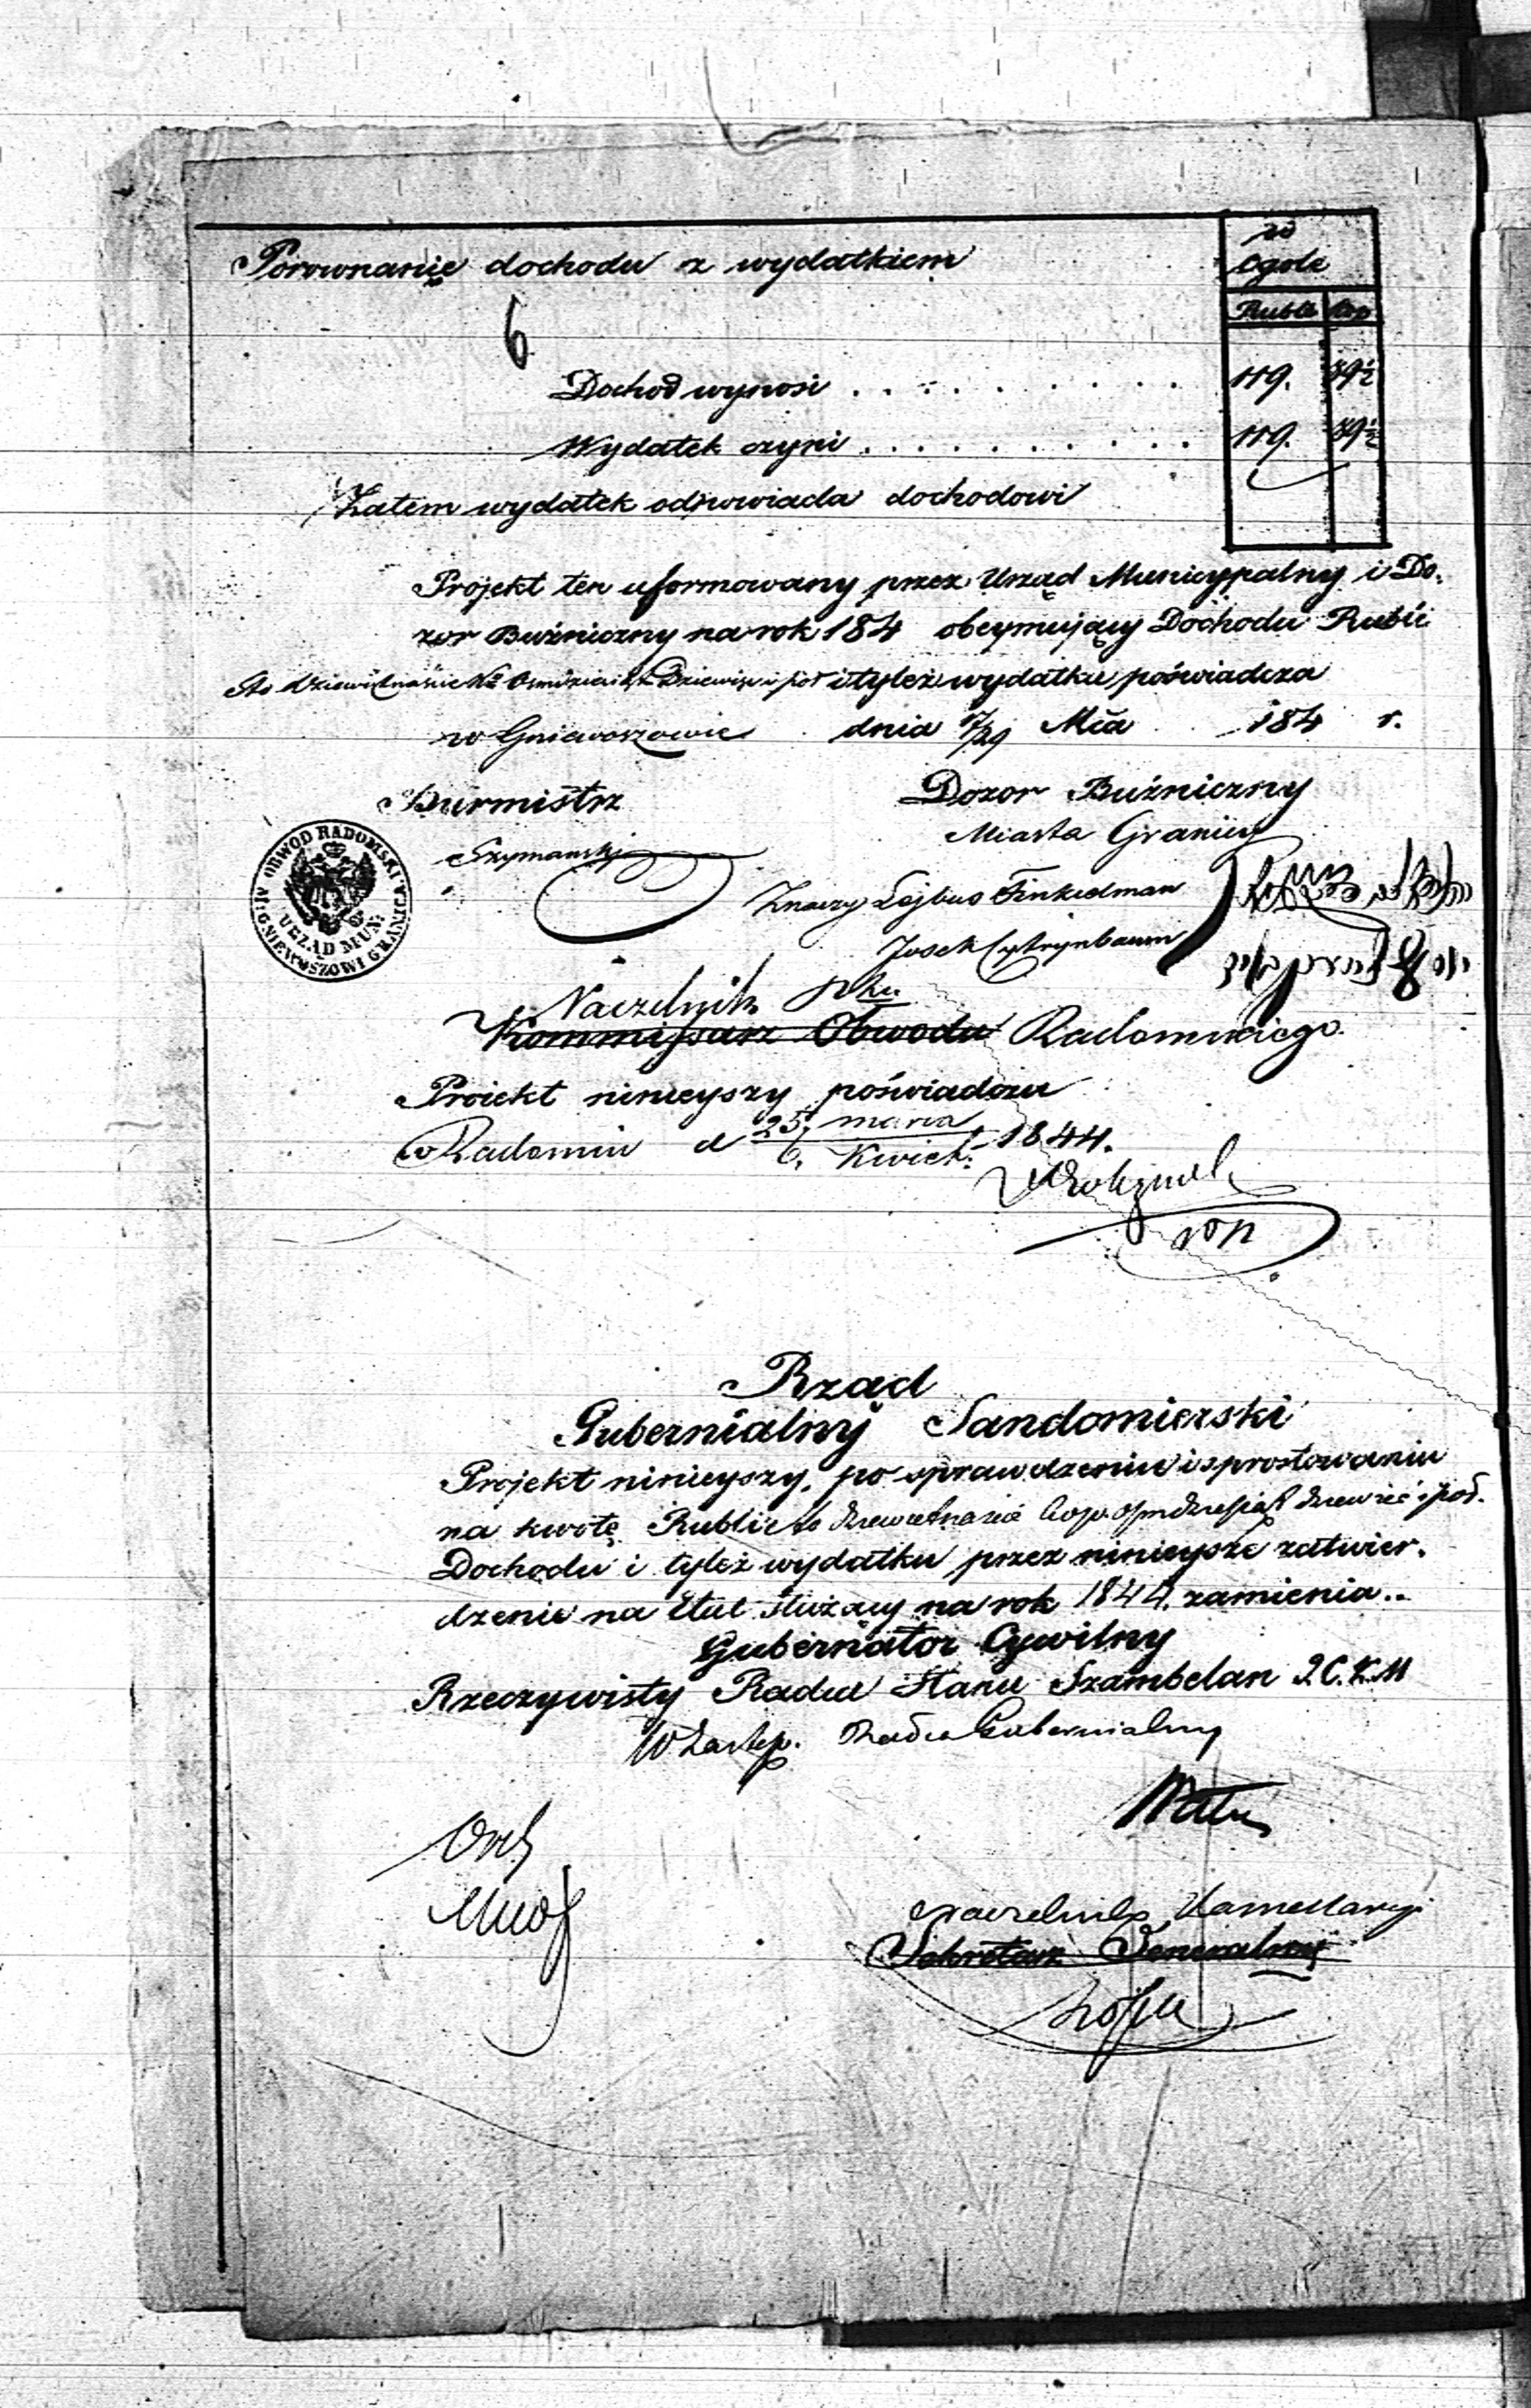 w
Porownanie dochodu z wydatkiem ogole
Ruble kop
6
Dochod wynosi . . . . . . . . . . 119. 89½
Wydatek czyni . . . . . . . . . . 119. 89½
Zatem wydatek odpowiada dochodowi
Projekt ten uformowany przez Urząd Municypalny i Do-
zor Buźniczny na rok 184 obeymujący Dochodu Rubli
Sto dziewiętnaście Osmdziesiąt Dziewięć i poł i tyleż wydatku poświadcza
w Gniewoszowie dnia 17/29 Mca 184 r.
Burmistrz
Szymanski
Dozor Buźniczny
Miasta Granicy
Znaczy Lejbus Finkielman
Josek Cytrynbaum
OBWÓD RADOMSKI
URZĄD MUN:
M: GNIEWOSZOWI GRANICA
Naczelnik Ptu
Kommissarz Obwodu Radomskiego
Proiekt ninieyszy poświadcza
w Radomiu d 25 marca / 6 Kwiet. 1844.
Rząd
Gubernialny Sandomierski
Projekt ninieyszy, po sprawdzeniu i sprostowaniu
na kwotę Rubli sto dziewietnascie kop. osmdziesiąt dziewięć i poł.
Dochodu i tyleż wydatku przez ninieysze zatwier-
dzenie na Etat służący na rok 1844. zamienia..
Gubernator Cywilny
Rzeczywisty Radca Stanu Szambelan D.C.K.M
W Zastęp. Radca Gubernialny
Naczelnik Kancellaryi
Sekretarz Generalny